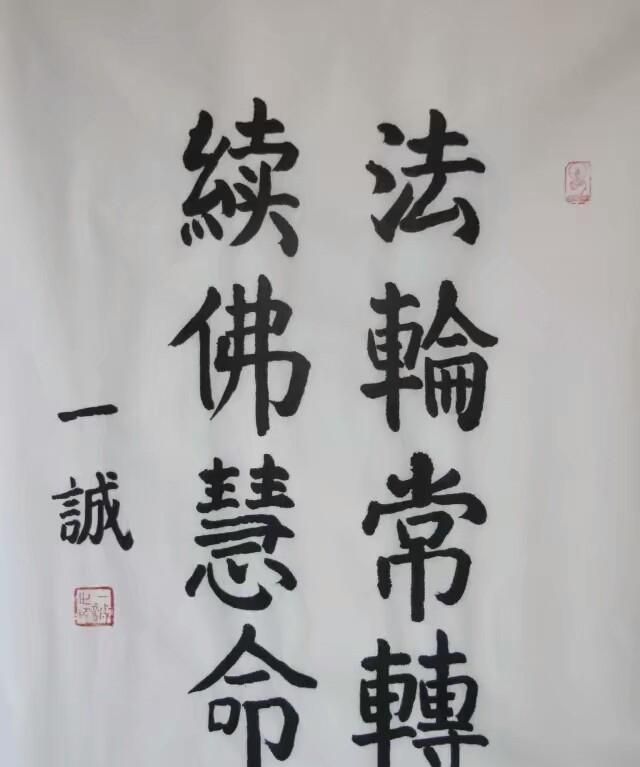 法輪常轉
続佛慧命
一誠